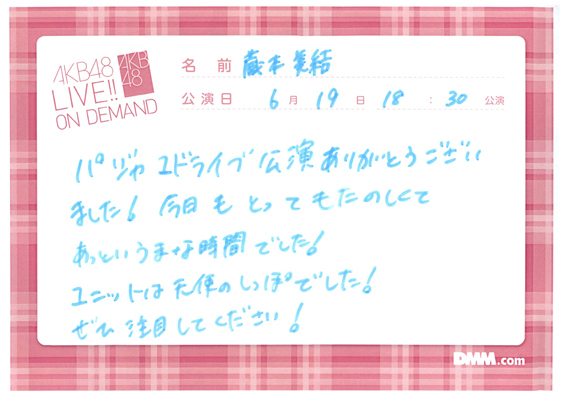 AKB48
LIVE!!
ON DEMAND
AKB
48
名前 蔵本美結
公演日 6月19日 18:30 公演
パジャマドライブ公演ありがとうござい
ました! 今日もとってもたのしくて
あっというまな時間でした!
ユニットは天使のしっぽでした!
ぜひ注目してください!
DMM.com